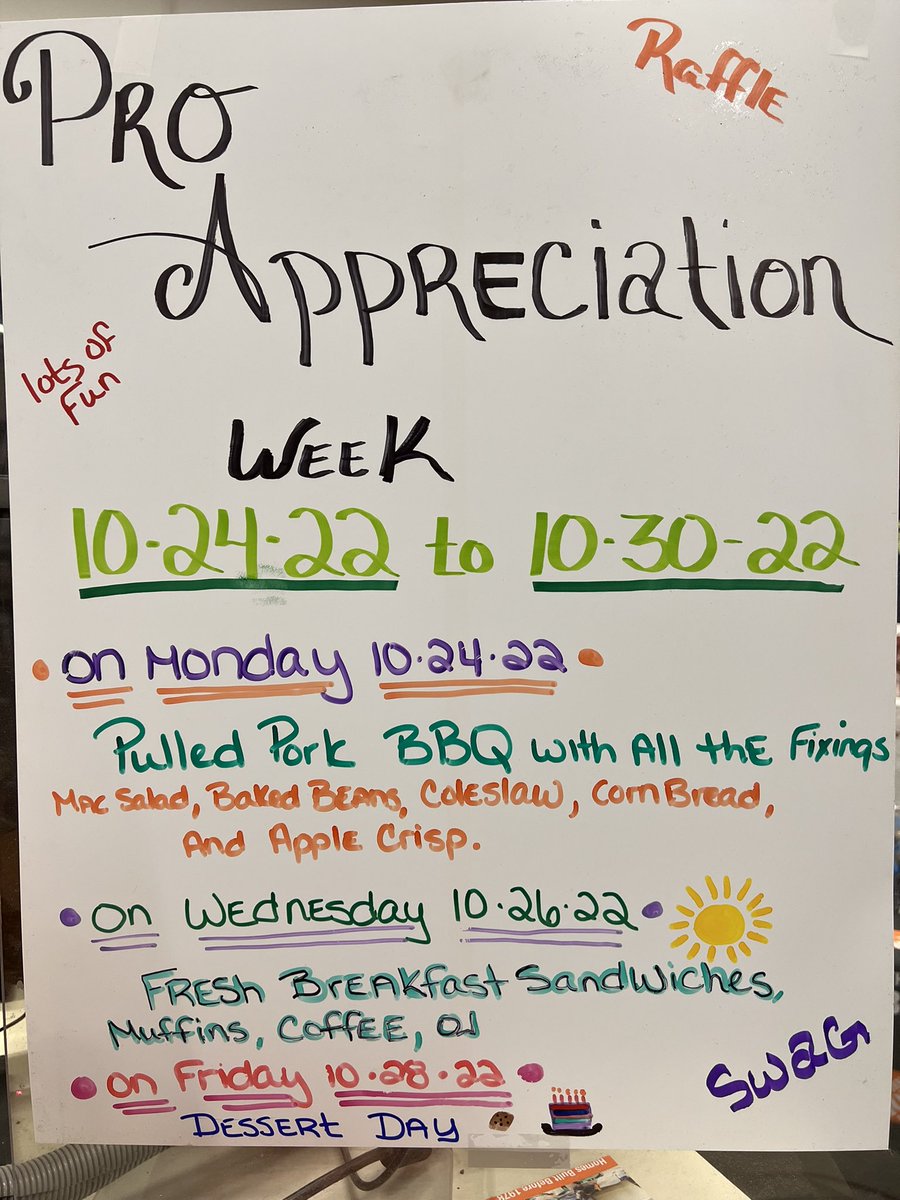 PRO
Raffle
Appreciation
lots of
Fun
WEEK
10-24-22 to 10-30-22
on Monday 10.24.22
Pulled Pork BBQ with All the Fixings
Mac Salad, Baked Beans, Coleslaw, Corn Bread,
And Apple Crisp.
on Wednesday 10.26.22
Fresh Breakfast Sandwiches,
Muffins, Coffee, OJ
Swag
on Friday 10.28.22
Dessert Day
Homes Built Before 1978